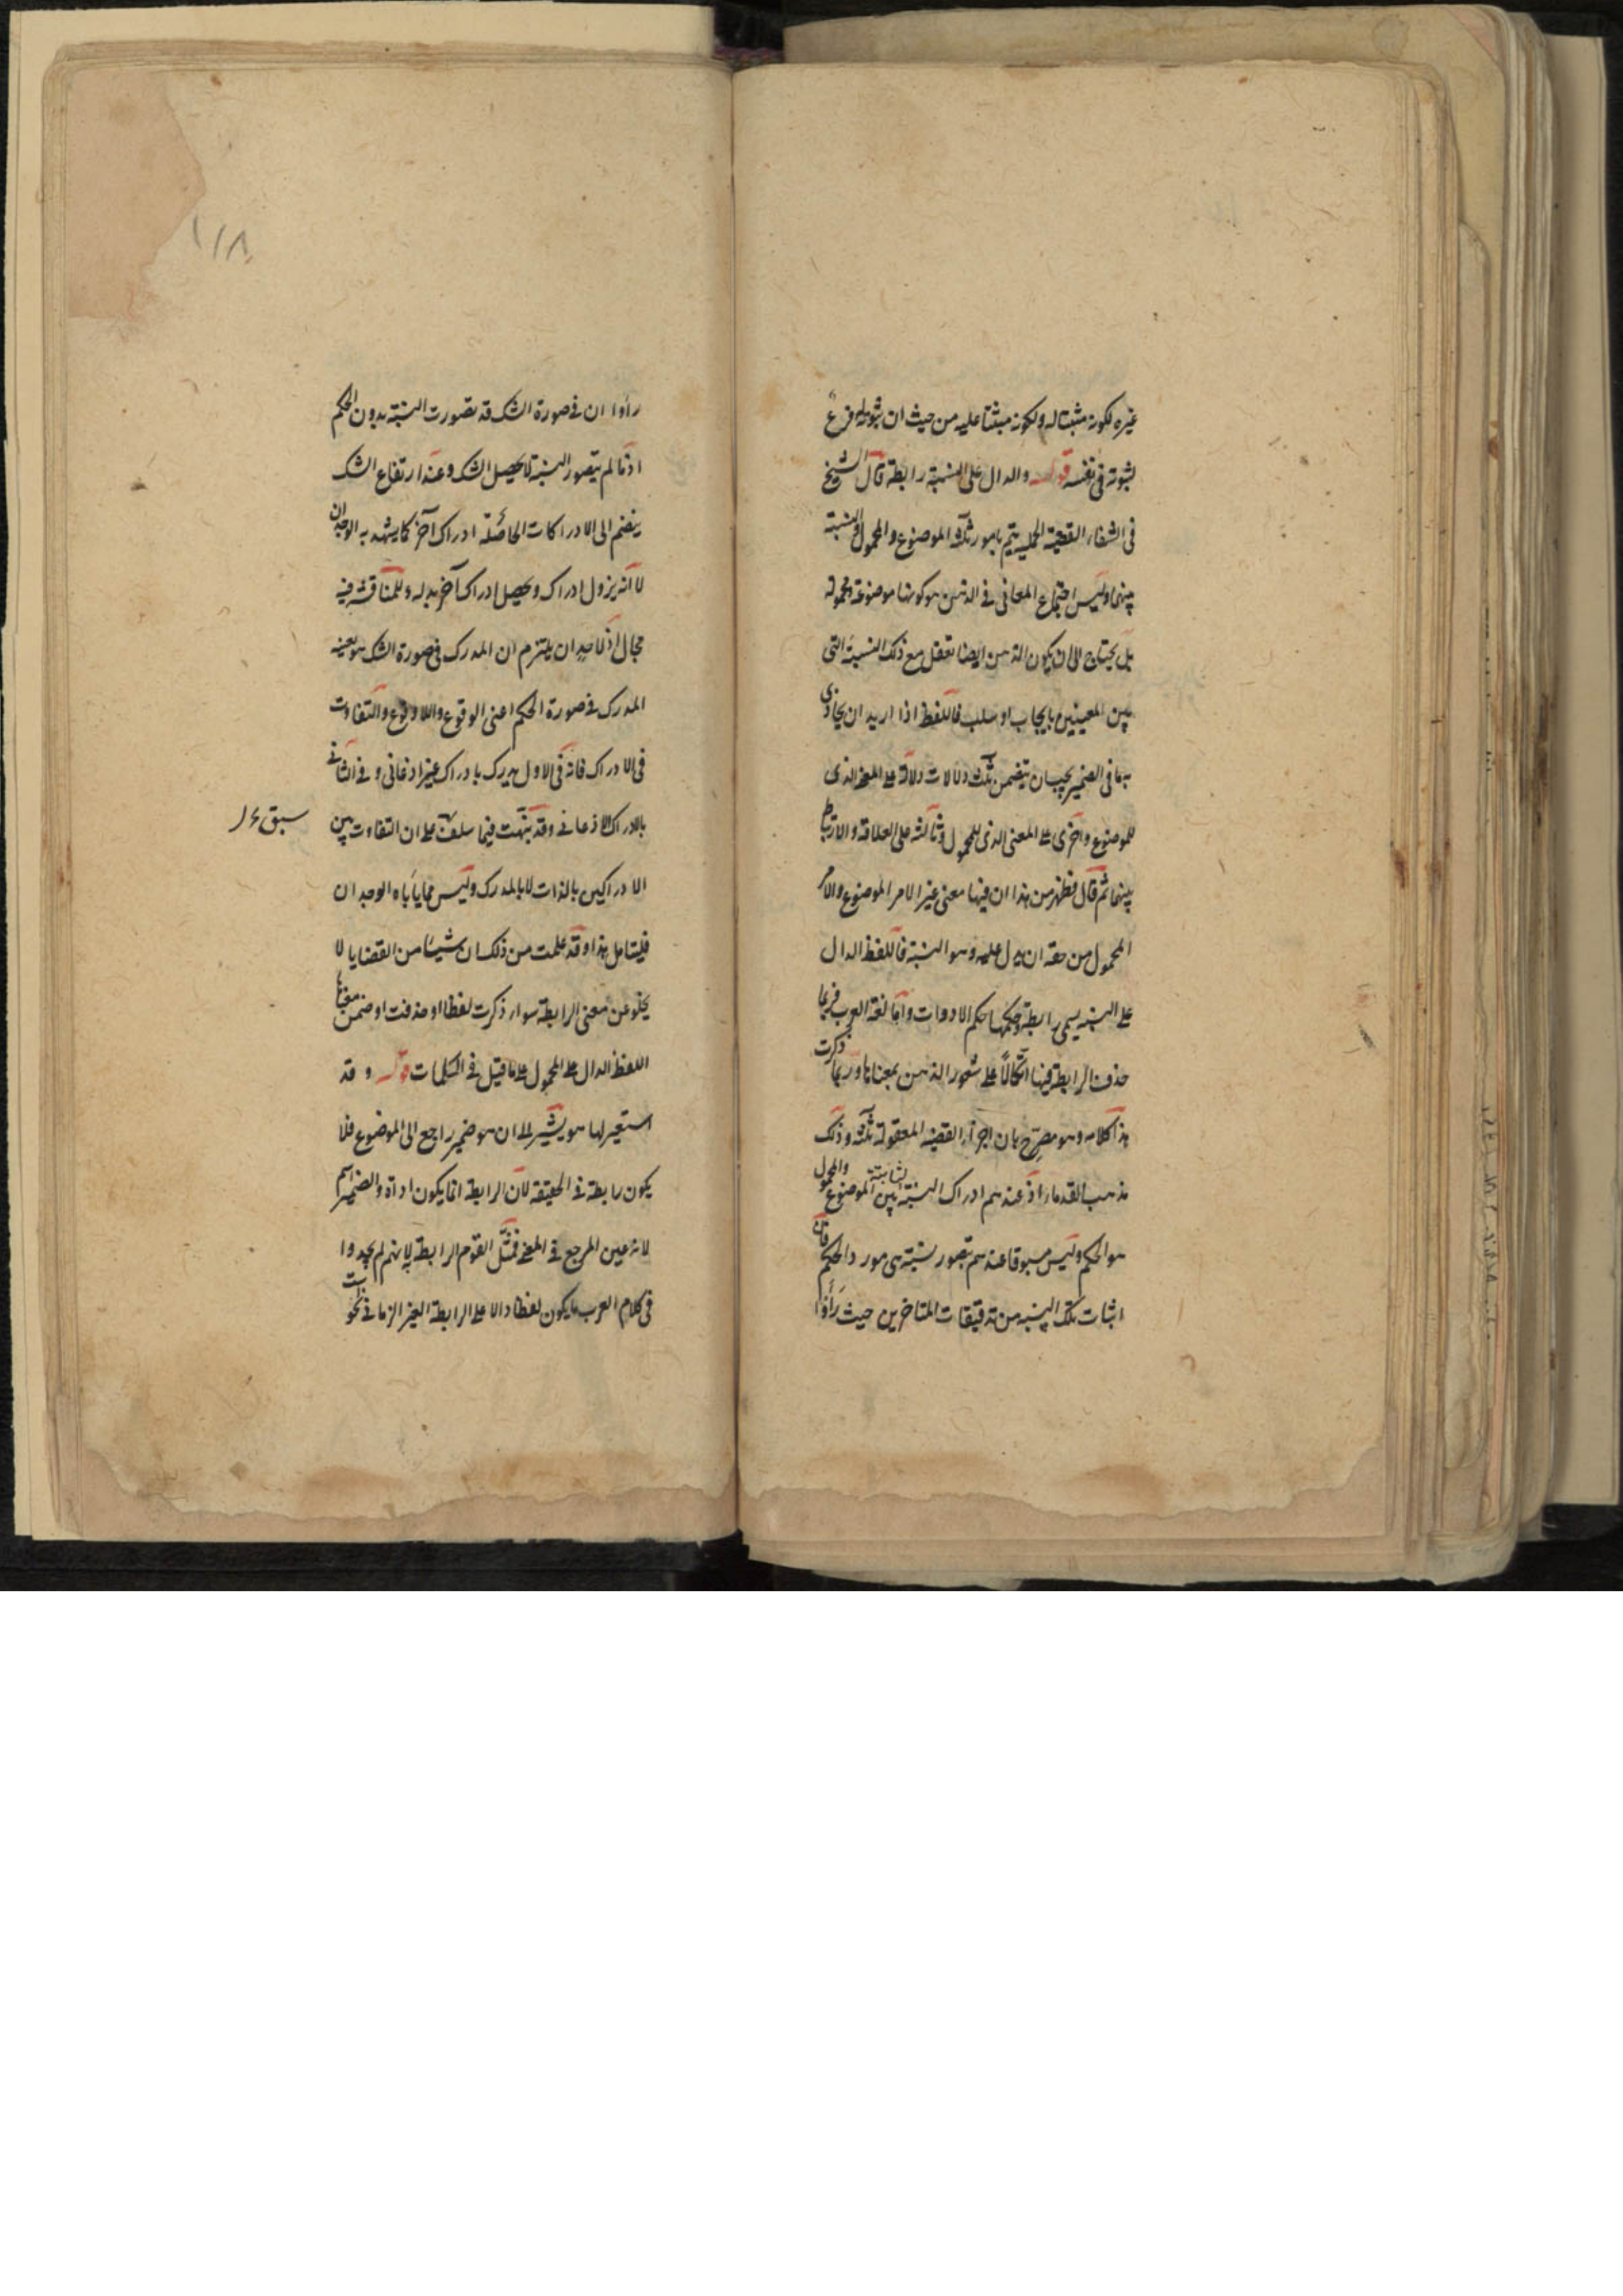 غيره لكونه مثبتا له ولكونه مبثتا عليه من حيث ان ثبوته له فرع
لثبوته فى نفسه قوله والدال على النسبة رابطة قال الشيخ
فى الشفاء القضية الحملية يتم بامور ثلثة الموضوع والمحمول والنسبة
بينهما وليس اجتماع المعانى فى الذهن هو كونها موضوعة ومحمولة
بل يحتاج الى ان يكون الذهن ايضا تعقل مع ذلك النسبة التى
بين المعنيين بايجاب او سلب فاللفظ اذا اريد ان يحاذى
به ما فى الضمير يجب ان يتضمن ثلث دلالات دلالة على المعنى الذى
للموضوع واخرى على المعنى الذى للمحمول وثالثة على العلاقة والارتباط
بينهما ثم قال فظهر من هذا ان فيها معنى غير الامر الموضوع والامر
المحمول من حقه ان يدل عليه وهو النسبة فاللفظ الدال
على النسبة يسمى رابطة وحكمها حكم الادوات واما لغة العرب فربما
حذفت الرابطة فيها اتكالاً على شعور الذهن بمعناها وربما ذكرت
هذا كلامه وهو مصرّح بان اجزاء القضية المعقولة ثلثة وذلك
مذهب القدماء اذ عندهم ادراك النسبة الثابتة بين الموضوع والمحمول
هو الحكم وليس مسبوقا عندهم بتصور نسبة هى مورد الحكم فان
اثبات تلك النسبة من تدقيقات المتاخرين حيث رَأَوْا
١١٨
رأوا ان فى صورة الشك قد تصورت النسبة بدون الحكم
اذ ما لم يتصور النسبة لا يحصل الشك وعند ارتفاع الشك
ينضم الى الادراكات الحاصلة ادراك آخر كما يشهد به الوجدان
لا انه يزول ادراك ويحصل ادراك آخر بدله وللمناقشة فيه
مجال اذ لاحدٍ ان يلتزم ان المدرك فى صورة الشك هو بعينه
المدرك فى صورة الحكم اعنى الوقوع واللا وقوع والتفاوت
فى الادراك فانه فى الاول يدرك بادراك غير اذعانى و فى الثانى
بالادراك الاذعانى وقد نبّهت فيما سلف على ان التفاوت بين
سبق
الادراكين بالذات لا بالمدرك وليس مما ياباه الوجدان
فليتامل هذا وقد علمت من ذلك ان شيئا من القضايا لا
يخلو عن معنى الرابطة سواء ذكرت لفظا او حذفت او ضمن معناها
اللفظ الدال على المحمول على ما قيل فى الكلمات قوله و قد
استعير لها هو يشير الى ان هو ضمير راجع الى الموضوع فلا
يكون رابطة فى الحقيقة لان الرابطة انما يكون اداة والضمير اسم
لانه عين المرجع فى المعنى فمثّل القوم الرابطة به لانهم لم يجدوا
فى كلام العرب ما يكون لفظا دالا على الرابطة الغير الزمانى نحو